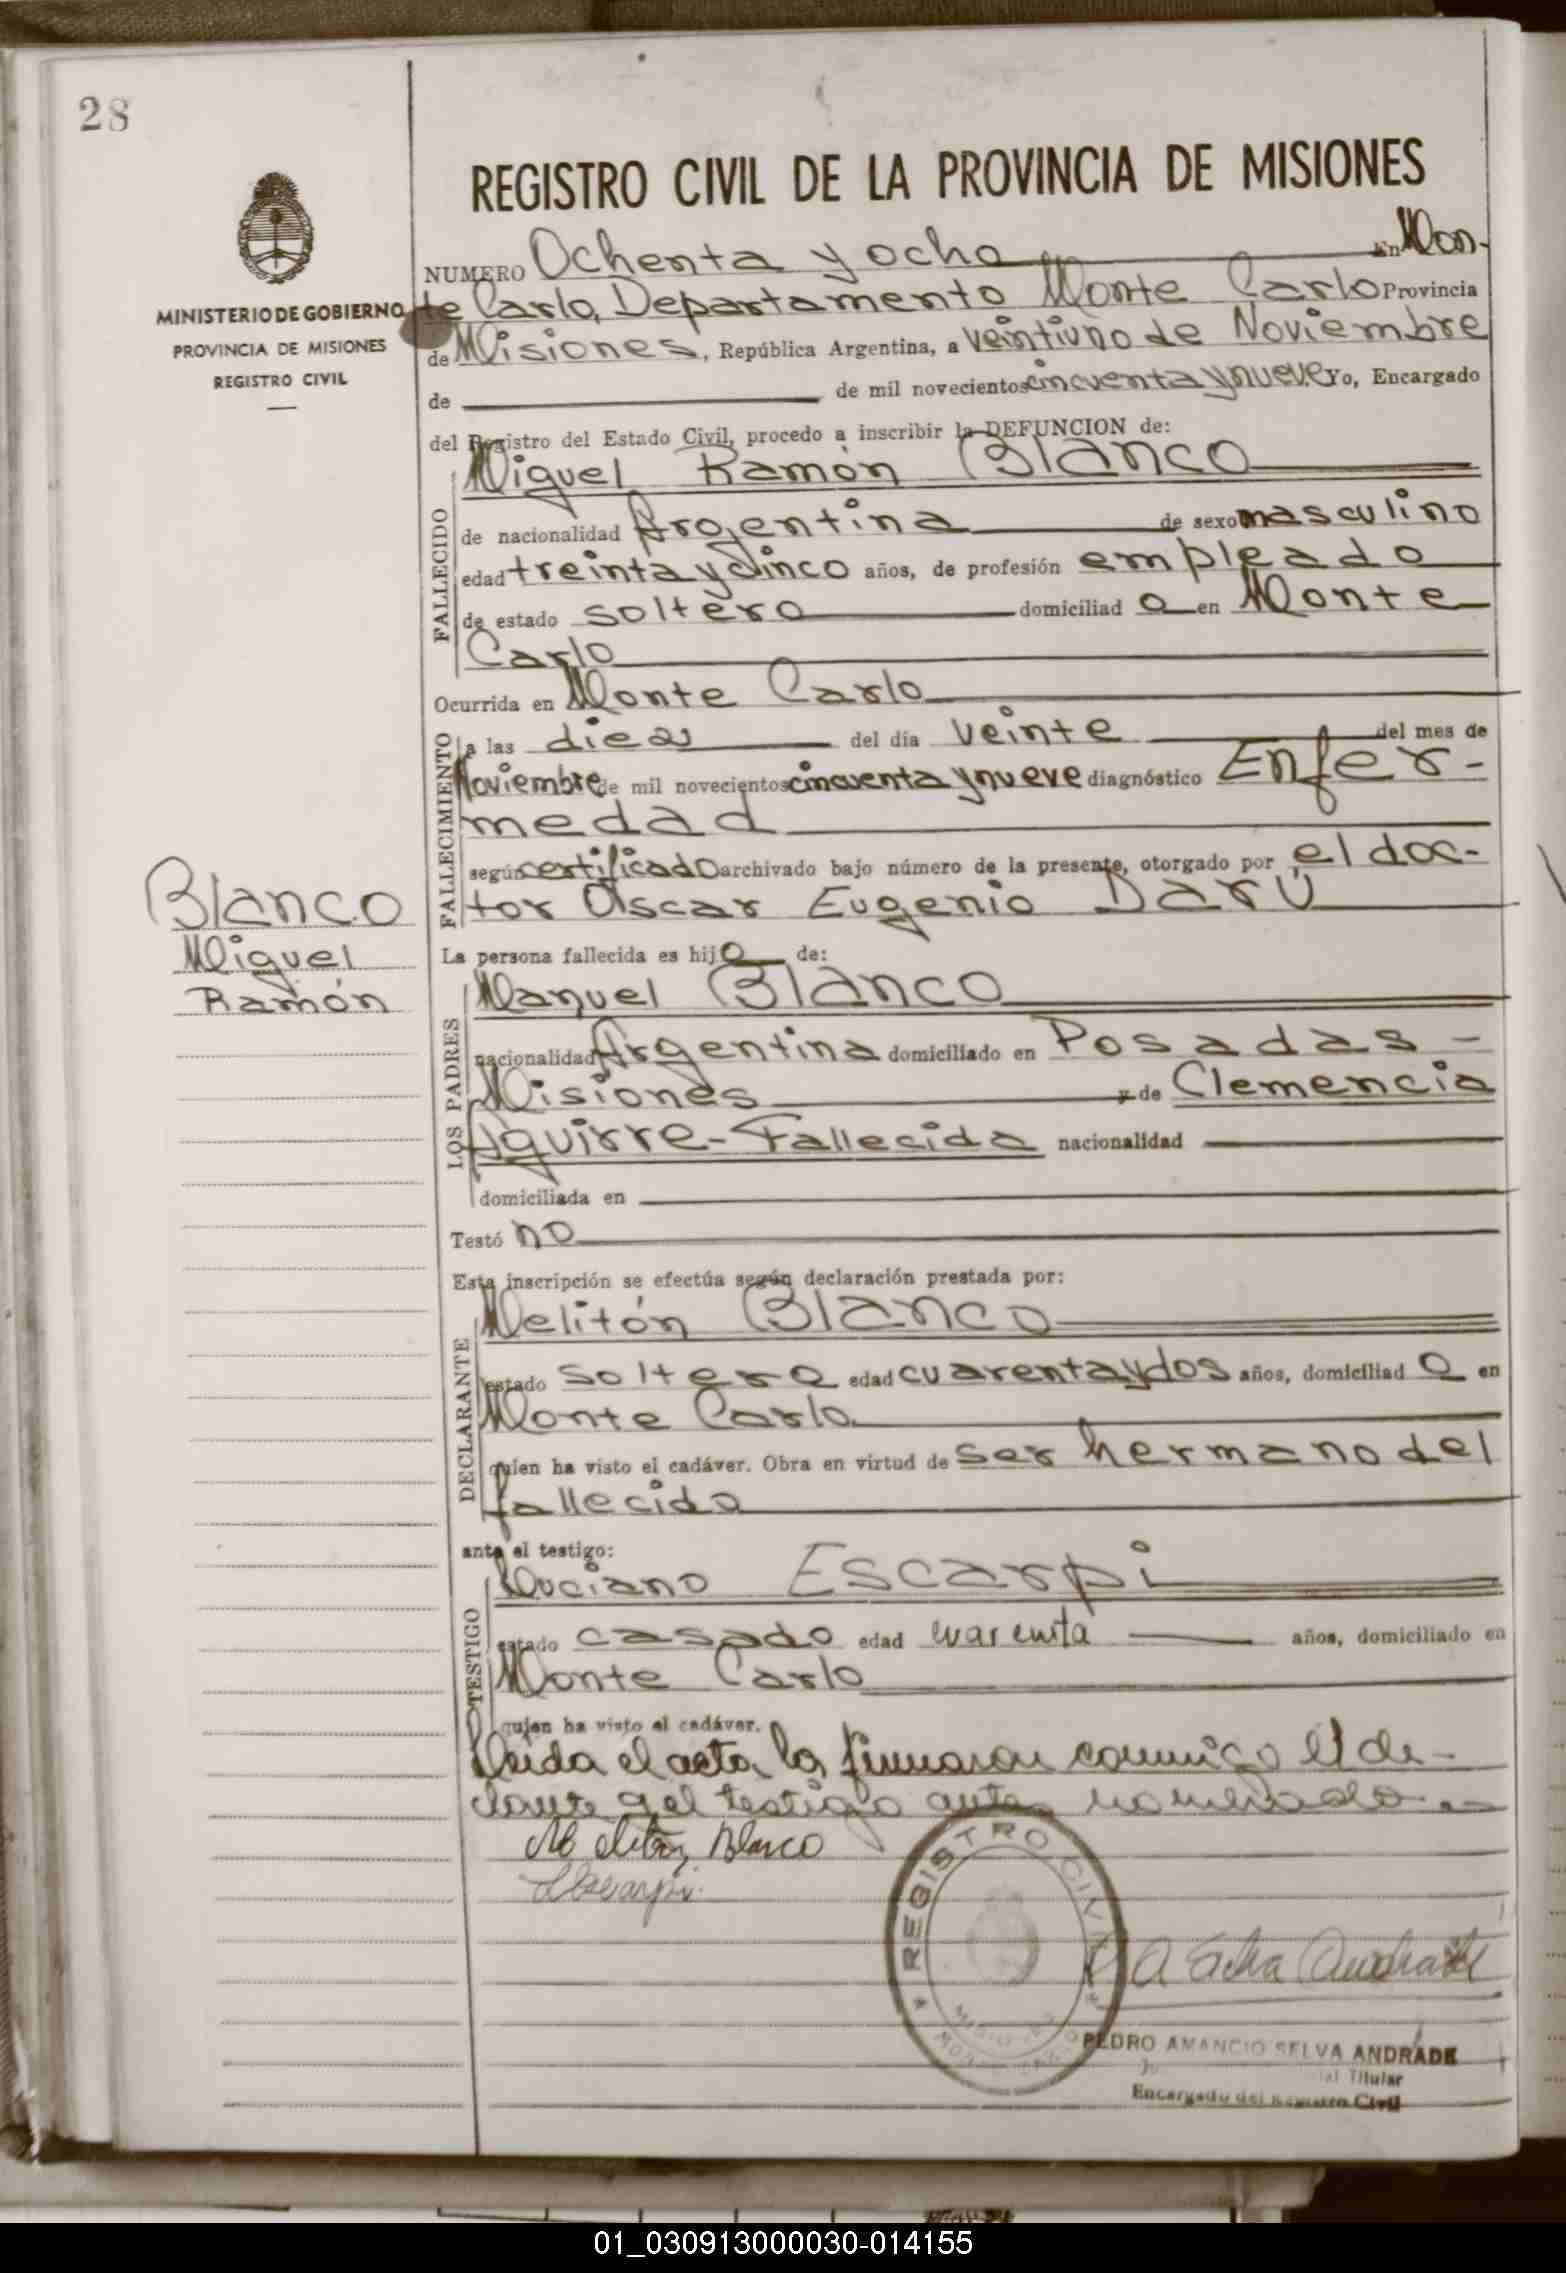 28
REGISTRO CIVIL DE LA PROVINCIA DE MISIONES
MINISTERIO DE GOBIERNO
PROVINCIA DE MISIONES
REGISTRO CIVIL
NUMERO Ochenta y ocho En Mon-
te Carlo, Departamento Monte Carlo Provincia
de Misiones, República Argentina, a veintiuno de Noviembre
de de mil novecientos cincuenta y nueve Yo, Encargado
del Registro del Estado Civil, procedo a inscribir la DEFUNCION de:
FALLECIDO
Miguel Ramón Blanco
de nacionalidad Argentina de sexo masculino
edad treinta y cinco años, de profesión empleado
de estado soltero domiciliad o en Monte
Carlo
Ocurrida en Monte Carlo
FALLECIMIENTO
a las diez del día veinte del mes de
Noviembre de mil novecientos cincuenta y nueve diagnóstico Enfer-
medad
según certificado archivado bajo número de la presente, otorgado por el doc-
tor Oscar Eugenio Darú
Blanco
Miguel
Ramón
La persona fallecida es hijo de:
LOS PADRES
Manuel Blanco
nacionalidad Argentina domiciliado en Posadas -
Misiones y de Clemencia
Aguirre - Fallecida nacionalidad
domiciliada en
Testó no
Esta inscripción se efectúa según declaración prestada por:
DECLARANTE
Melitón Blanco
estado soltero edad cuarenta y dos años, domiciliad o en
Monte Carlo
quien ha visto el cadáver. Obra en virtud de ser hermano del
fallecido
ante el testigo:
TESTIGO
Luciano Escarpi
estado casado edad cuarenta años, domiciliado en
Monte Carlo
quien ha visto el cadáver.
Leida el acta la firmaron conmigo el de-
clarante y el testigo antes nombrado.
Melitón Blanco
LEscarpi.
REGISTRO CIVIL
MISIONES
MONTE CARLO
A Selva Andrade
PEDRO AMANCIO SELVA ANDRADE
Titular
Encargado del Registro Civil
01_030913000030-014155